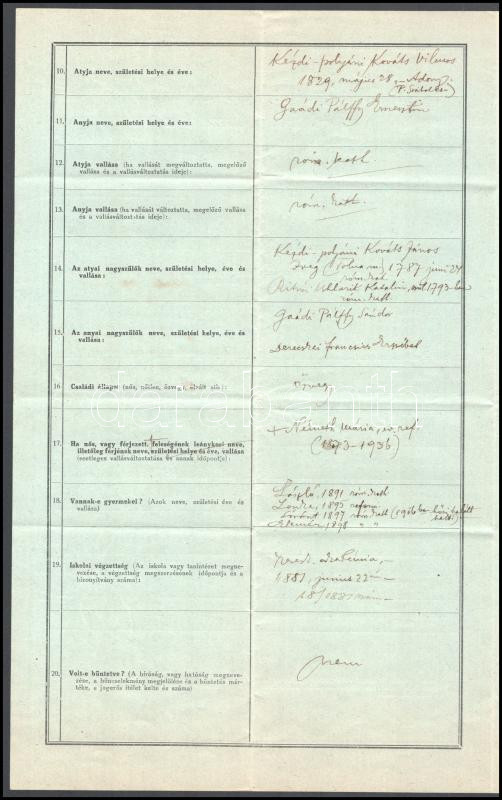 10. Atyja neve, születési helye és éve:
Kézdi-polyáni Kováts Vilmos
1829, május 28, Adony
(P. Szabolcs)
11. Anyja neve, születési helye és éve:
Gaádi Pálffy Ernesztin
12. Atyja vallása (ha vallását megváltoztatta, megelőző
vallása és a vallásváltoztatás ideje):
róm. kath
13. Anyja vallása (ha vallását változtatta, megelőző vallása
és a vallásváltoztatás ideje):
róm. kath.
14. Az atyai nagyszülők neve, születési helye, éve és
vallása:
Kézdi-polyáni Kováts János
1787 juni 24
róm. kath
Katalin, 1793-ban
róm. kath
15. Az anyai nagyszülők neve, születési helye, éve és
vallása:
Gaádi Pálffy Sándor
Derecskei Francsics Erzsébet
16. Családi állapot (nős, nőtlen, özvegy, elvált stb):
özvegy
17. Ha nős, vagy férjezett, feleségének leánykori neve,
illetőleg férjének neve, születési helye és éve, vallása
(esetleges vallásváltoztatása és annak időpontja):
+ Németh Mária, ev. ref.
(1873-1936)
18. Vannak-e gyermekei? (Azok neve, születési éve és
vallása)
László, 1891 róm. kath
1895 reform.
1897 róm. kath
Elemér 1898 " "
19. Iskolai végzettség (Az iskola vagy tanintézet megne-
vezése, a végzettség megszerzésének időpontja és a
bizonyítvány száma):
1881, junius 22
18/1881 szám
20. Volt-e büntetve? (A bíróság, vagy hatóság megneve-
zése, a bűncselekmény megjelölése és a büntetés mér-
téke, a jogerős ítélet kelte és száma)
nem
darabanth